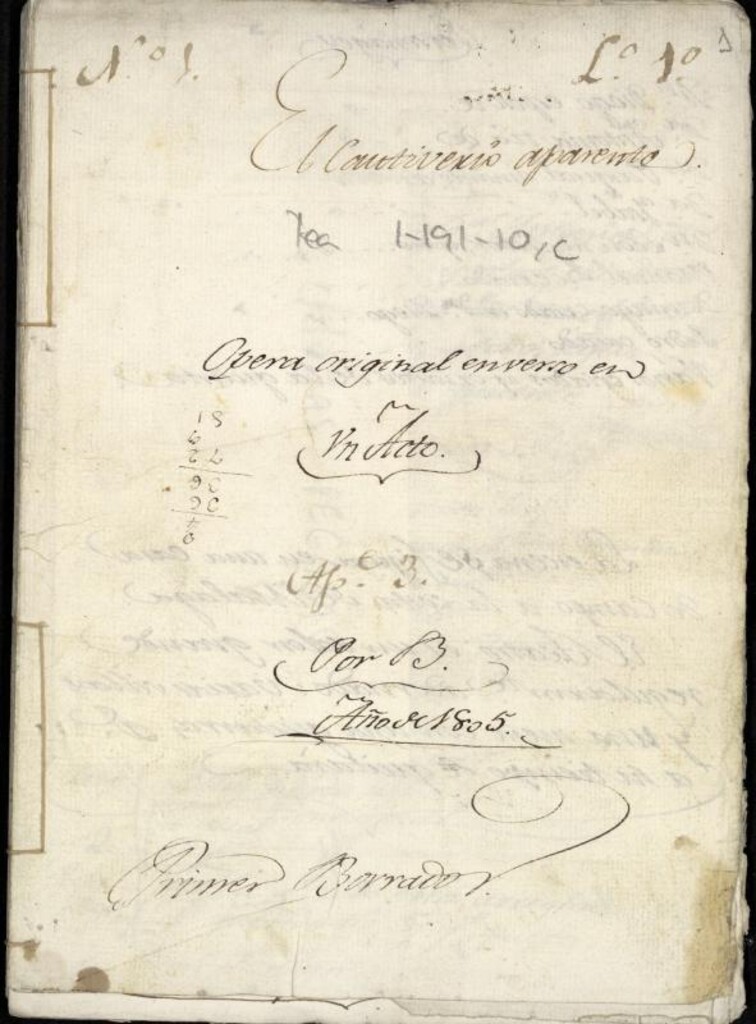 1
N.º 1. L.º 1.º
El Cautiverio aparente.
Tea 1-191-10, C
Opera original en verso en
Vn Acto.
Ap.e 3.
Por B.
Año de 1805.
Primer Borrador.